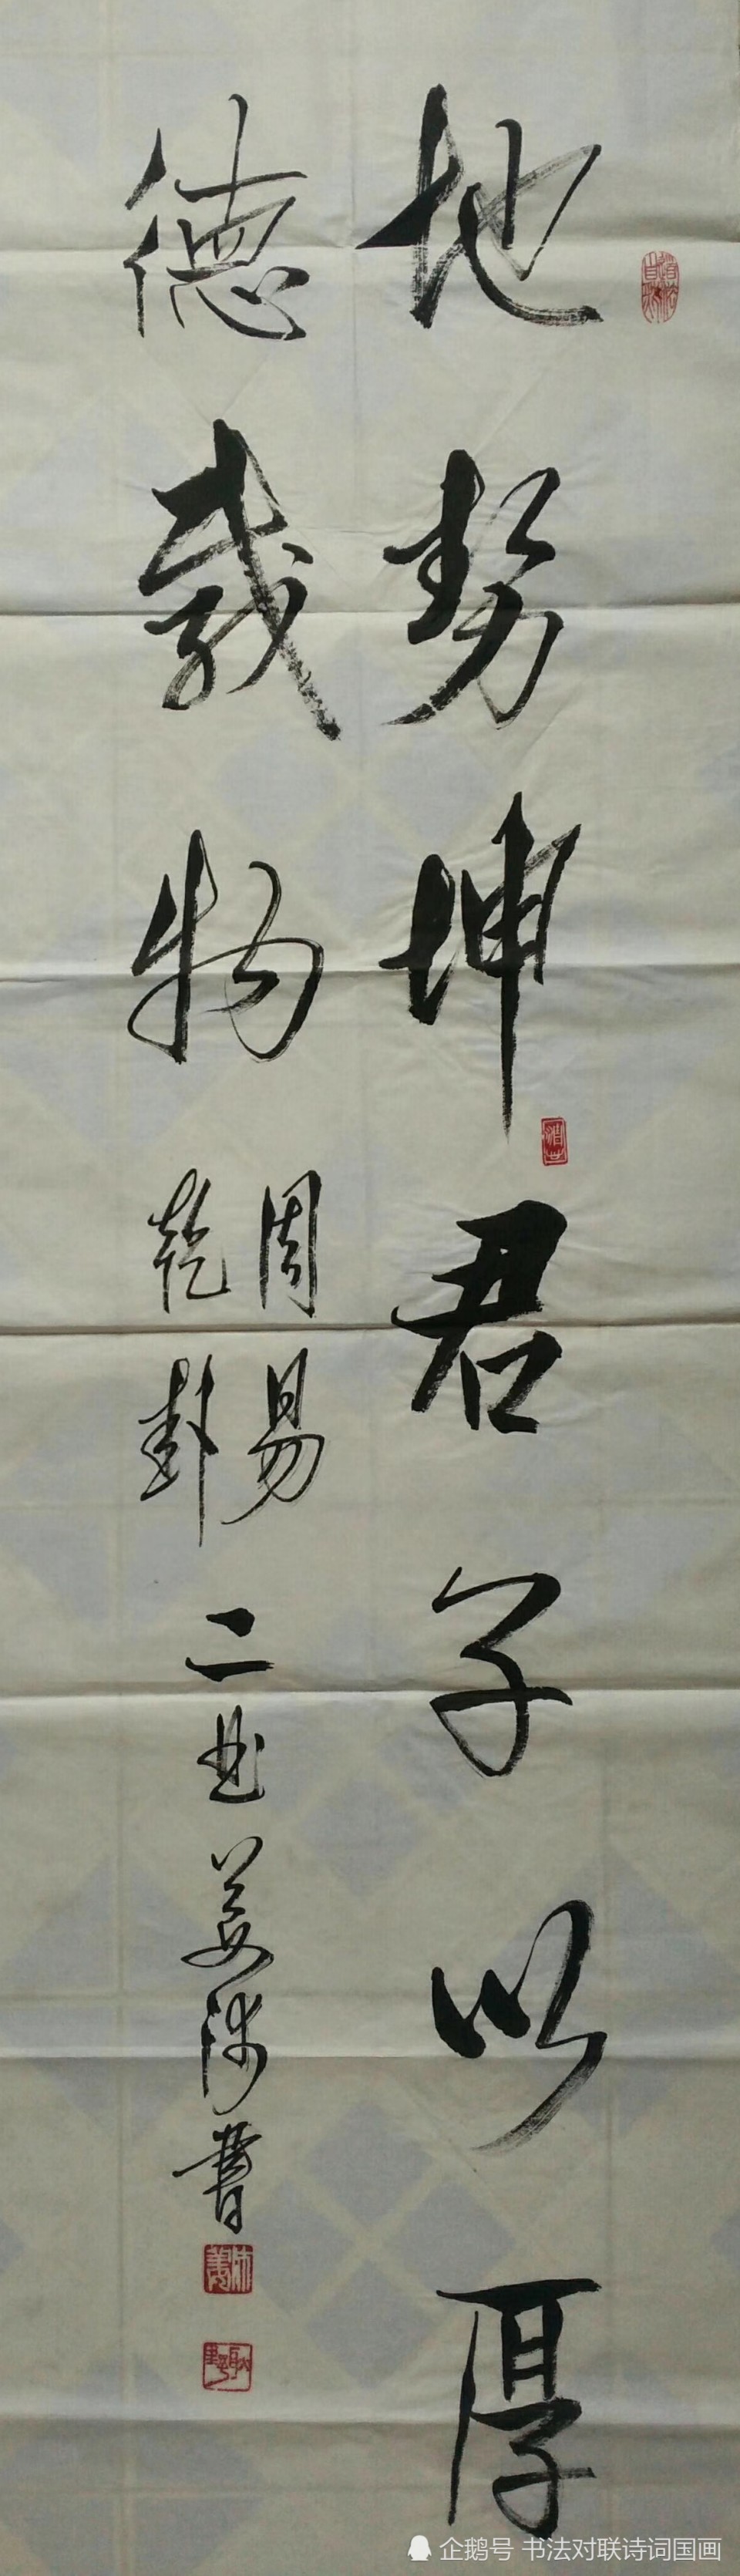 地势坤君子以厚
德载物
周易
乾卦
二〇一
姜沛书
企鹅号 书法对联诗词国画